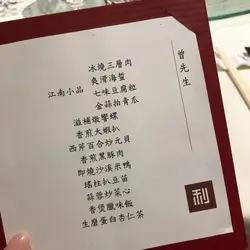 曾先生
江南小品
冰燒三層肉
爽滑海蜇
七味豆腐粒
金蒜拍青瓜
滋補燉響螺
香煎大蝦扒
西芹百合炒元貝
香煎黑豚肉
即燒沙溪米鴨
瑤柱扒豆苗
蒜蓉炒菜心
香煲臘味飯
生磨蛋白杏仁茶
利